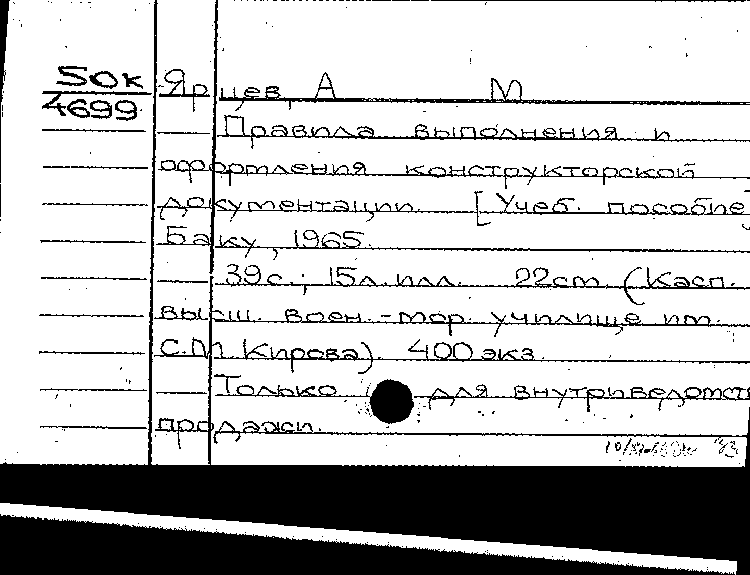 50к Ярцев, А М
4699
Правила выполнения и
оформления конструкторской
документации. [Учеб. пособие]
Баку, 1965.
39с.; 15л.илл. 22cm (Касп.
высш. воен.-мор. училище им.
С.М.Кирова). 400 экз.
Только для внутриведомст
продажи.